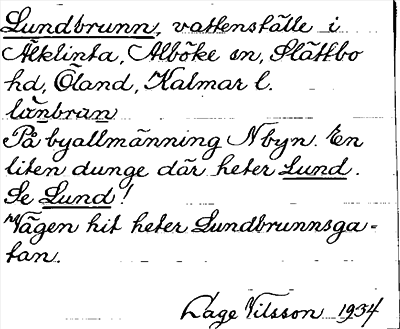 Lundbrunn, vattenställe i
Älklinta, Alböke sn, Slättbo
hd, Öland, Kalmar l.
lúnbran
På byallmänning N byn. En
liten dunge där heter Lund.
Se Lund!
Vägen hit heter Lundbrunnsga-
tan.
Lage Nilsson 1934